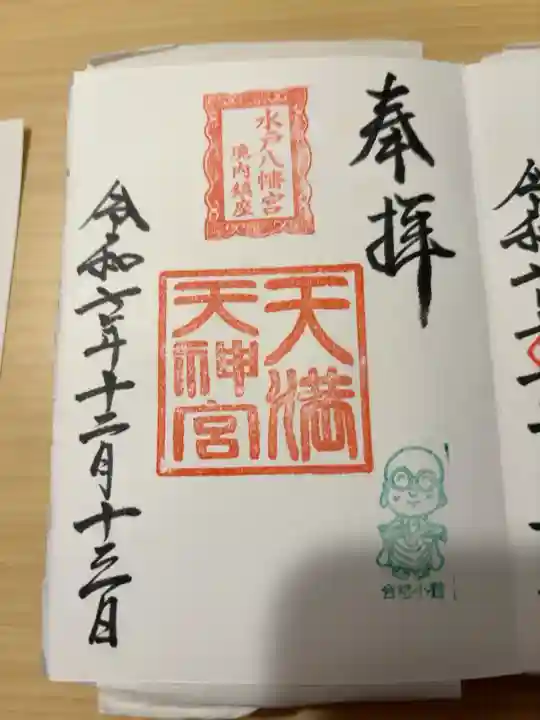 奉拝
水戸八幡宮
境内鎮座
天満
天神宮
令和六年十二月十三日
合格小僧
令和六年十二